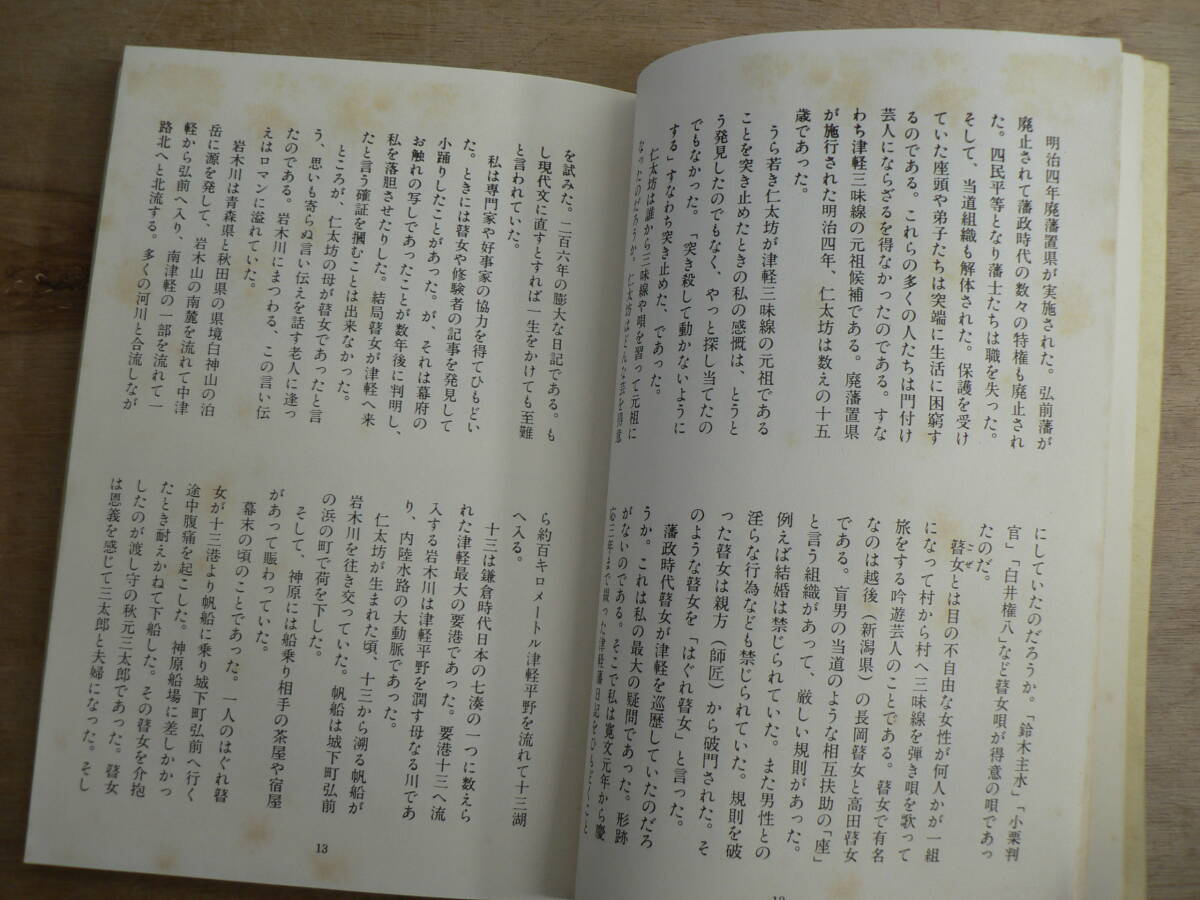 明治四年廃藩置県が実施された。弘前藩が
廃止されて藩政時代の数々の特権も廃止され
た。四民平等となり藩士たちは職を失った。
そして、当道組織も解体された。保護を受け
ていた座頭や弟子たちは突端に生活に困窮す
るのである。これらの多くの人たちは門付け
芸人にならざるを得なかったのである。すな
わち津軽三味線の元祖候補である。廃藩置県
が施行された明治四年、仁太坊は数えの十五
歳であった。
うら若き仁太坊が津軽三味線の元祖である
ことを突き止めたときの私の感慨は、とうと
う発見したのでもなく、やっと探し当てたの
でもなかった。「突き殺して動かないように
する」すなわち突き止めた、であった。
仁太坊は誰から三味線や唄を習って元祖に
なったのだろうか。仁太坊はどんな芸を得意
にしていたのだろうか。「鈴木主水」「小栗判
官」「白井権八」など瞽女唄が得意の唄であっ
たのだ。
瞽女とは目の不自由な女性が何人かが一組
ごぜ
になって村から村へ三味線を弾き唄を歌って
旅をする吟遊芸人のことである。瞽女で有名
なのは越後（新潟県）の長岡瞽女と高田瞽女
である。盲男の当道のような相互扶助の「座」
と言う組織があって、厳しい規則があった。
例えば結婚は禁じられていた。また男性との
淫らな行為なども禁じられていた。規則を破
った瞽女は親方（師匠）から破門された。そ
のような瞽女を「はぐれ瞽女」と言った。
藩政時代瞽女が津軽を巡歴していたのだろ
うか。これは私の最大の疑問であった。形跡
がないのである。そこで私は寛文元年から慶
応三年まで綴った津軽藩日記をひもどくこと
を試みた。二百六年の膨大な日記である。も
し現代文に直すとすれば一生をかけても至難
と言われていた。
私は専門家や好事家の協力を得てひもどい
た。ときには瞽女や修験者の記事を発見して
小踊りしたことがあった。が、それは幕府の
お触れの写しであったことが数年後に判明し、
私を落胆させたりした。結局瞽女が津軽へ来
たと言う確証を摑むことは出来なかった。
ところが、仁太坊の母が瞽女であったと言
う、思いも寄らぬ言い伝えを話す老人に逢っ
たのである。岩木川にまつわる、この言い伝
えはロマンに溢れていた。
岩木川は青森県と秋田県の県境白神山の泊
岳に源を発して、岩木山の南麓を流れて中津
軽から弘前へ入り、南津軽の一部を流れて一
路北へと北流する。多くの河川と合流しなが
ら約百キロメートル津軽平野を流れて十三湖
へ入る。
十三は鎌倉時代日本の七湊の一つに数えら
れた津軽最大の要港であった。要港十三へ流
入する岩木川は津軽平野を潤す母なる川であ
り、内陸水路の大動脈であった。
仁太坊が生まれた頃、十三から溯る帆船が
岩木川を往き交っていた。帆船は城下町弘前
の浜の町で荷を下した。
そして、神原には船乗り相手の茶屋や宿屋
があって賑わっていた。
幕末の頃のことであった。一人のはぐれ瞽
女が十三港より帆船に乗り城下町弘前へ行く
途中腹痛を起こした。神原船場に差しかかっ
たとき耐えかねて下船した。その瞽女を介抱
したのが渡し守の秋元三太郎であった。瞽女
は恩義を感じて三太郎と夫婦になった。そし
13